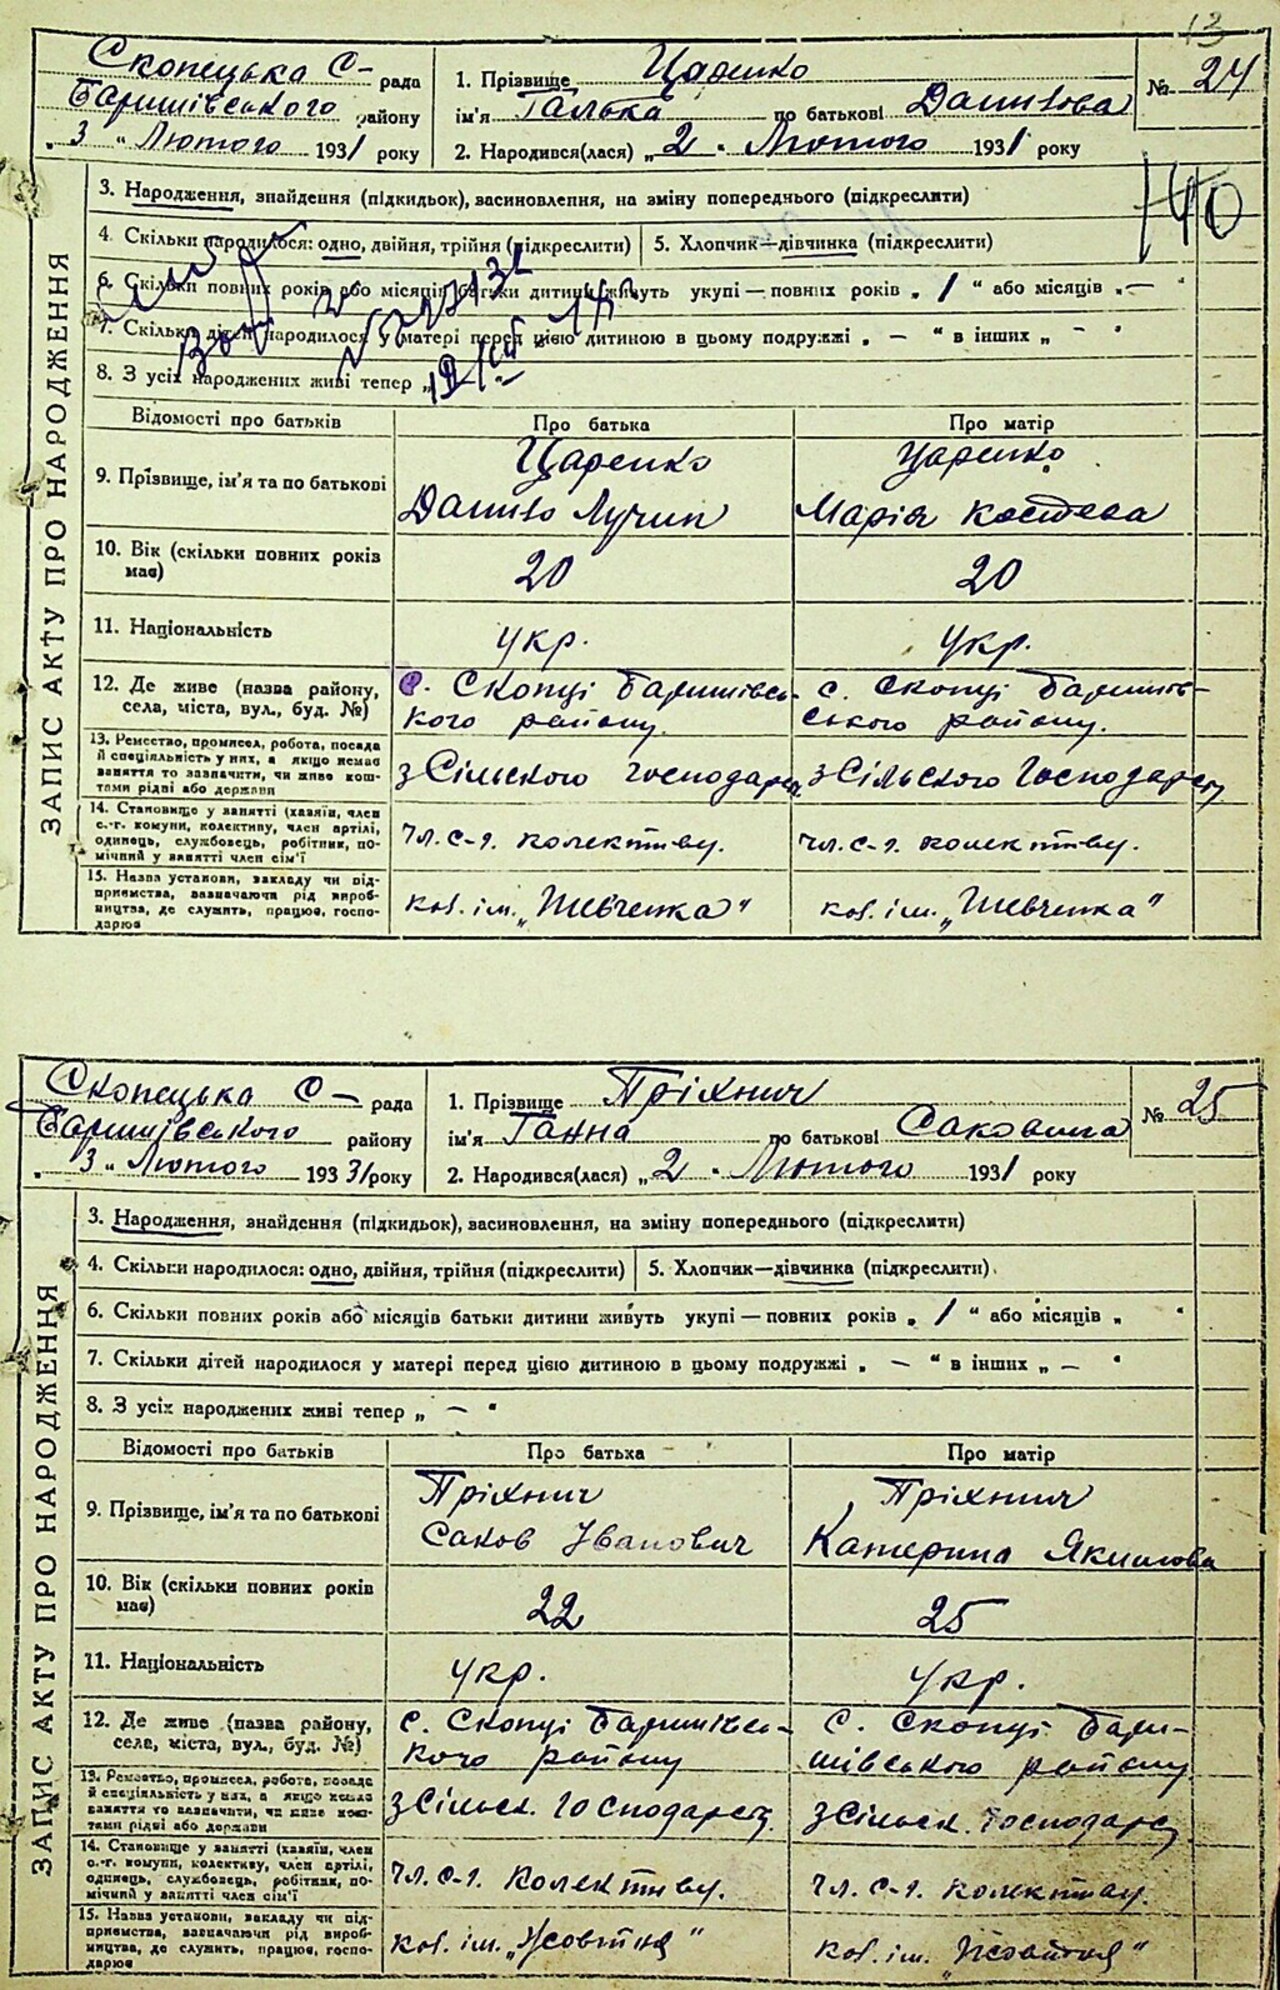 13
Скопецька С- рада
Баришівського району
„ 3 " Лютого 1931 року
1. Прізвище Царенко
ім'я Галька по батькові Данилова
2. Народився(лася) „ 2 " Лютого 1931 року
№ 24
140
ЗАПИС АКТУ ПРО НАРОДЖЕННЯ
3. Народження, знайдення (підкидьок), засиновлення, на зміну попереднього (підкреслити)
4. Скільки народилося: одно, двійня, трійня (підкреслити) 5. Хлопчик—дівчинка (підкреслити)
6. Скільки повних років або місяців батьки дитини живуть укупі — повних років „ 1 " або місяців „ — "
7. Скільки дітей народилося у матері перед цією дитиною в цьому подружжі „ — " в інших „ — "
8. З усіх народжених живі тепер „
Відомості про батьків Про батька Про матір
9. Прізвище, ім'я та по батькові Царенко Данило Лучин Царенко Марія Костєва
10. Вік (скільки повних років має) 20 20
11. Національність укр. укр.
12. Де живе (назва району, села, міста, вул., буд. №) с. Скопці Баришівсь- с. Скопці Баришів-
кого району. ського району.
13. Ремество, промисел, робота, посада й спеціяльність у них, а якщо немає заняття то зазначити, чи живе коштами рідні або держави з Сільского господарст. з Сільського Господарст
14. Становище у занятті (хазяїн, член с.-г. комуни, колективу, член артілі, одинець, службовець, робітник, помічний у занятті член сім'ї чл. с-г. колективу. чл. с-г. колективу.
15. Назва установи, закладу чи підприємства, зазначаючи рід виробництва, де служить, працює, господарює кол. ім. „Шевченка" кол. ім. „Шевченка"
Скопецька С- рада
Баришівського району
„ 3 " Лютого 193 31 року
1. Прізвище Пріхнич
ім'я Ганна по батькові Саковина
2. Народився(лася) „ 2 " Лютого 1931 року
№ 25
ЗАПИС АКТУ ПРО НАРОДЖЕННЯ
3. Народження, знайдення (підкидьок), засиновлення, на зміну попереднього (підкреслити)
4. Скільки народилося: одно, двійня, трійня (підкреслити) 5. Хлопчик—дівчинка (підкреслити)
6. Скільки повних років або місяців батьки дитини живуть укупі — повних років „ 1 " або місяців „ "
7. Скільки дітей народилося у матері перед цією дитиною в цьому подружжі „ — " в інших „ — "
8. З усіх народжених живі тепер „ — "
Відомості про батьків Про батька Про матір
9. Прізвище, ім'я та по батькові Пріхнич Саков Іванович Пріхнич Катерина Якимова
10. Вік (скільки повних років має) 22 25
11. Національність укр. укр.
12. Де живе (назва району, села, міста, вул., буд. №) с. Скопці Баришівсь- с. Скопці Бари-
кого району шівського району
13. Ремество, промисел, робота, посада й спеціяльність у них, а якщо немає заняття то зазначити, чи живе коштами рідні або держави з Сільск. господарст. з Сільск. Господарст
14. Становище у занятті (хазяїн, член с.-г. комуни, колективу, член артілі, одинець, службовець, робітник, помічний у занятті член сім'ї чл. с-г. колективу. чл. с-г. колективу.
15. Назва установи, закладу чи підприємства, зазначаючи рід виробництва, де служить, працює, господарює кол. ім. „Жовтня" кол. ім. „Жовтня"